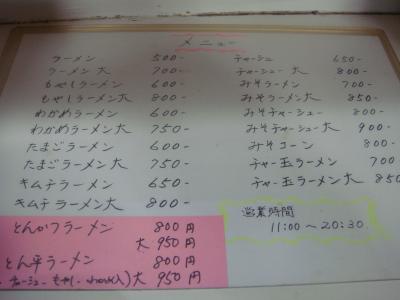 メニュー
ラーメン 500-
ラーメン 大 700-
もやしラーメン 600-
もやしラーメン大 800-
わかめラーメン 600-
わかめラーメン大 750-
たまごラーメン 600-
たまごラーメン大 750-
キムチラーメン 650-
キムチラーメン大 800-
チャーシュー 650-
チャーシュー 大 800-
みそラーメン 700-
みそラーメン大 850-
みそチャーシュー 800-
みそチャーシュー大 900-
みそコーン 800-
チャー玉ラーメン 700
チャー玉ラーメン大 850
とんかつラーメン 800円
大 950円
とん平ラーメン 800円
チャーシュー もやし 入)大 950円
営業時間
11:00〜20:30